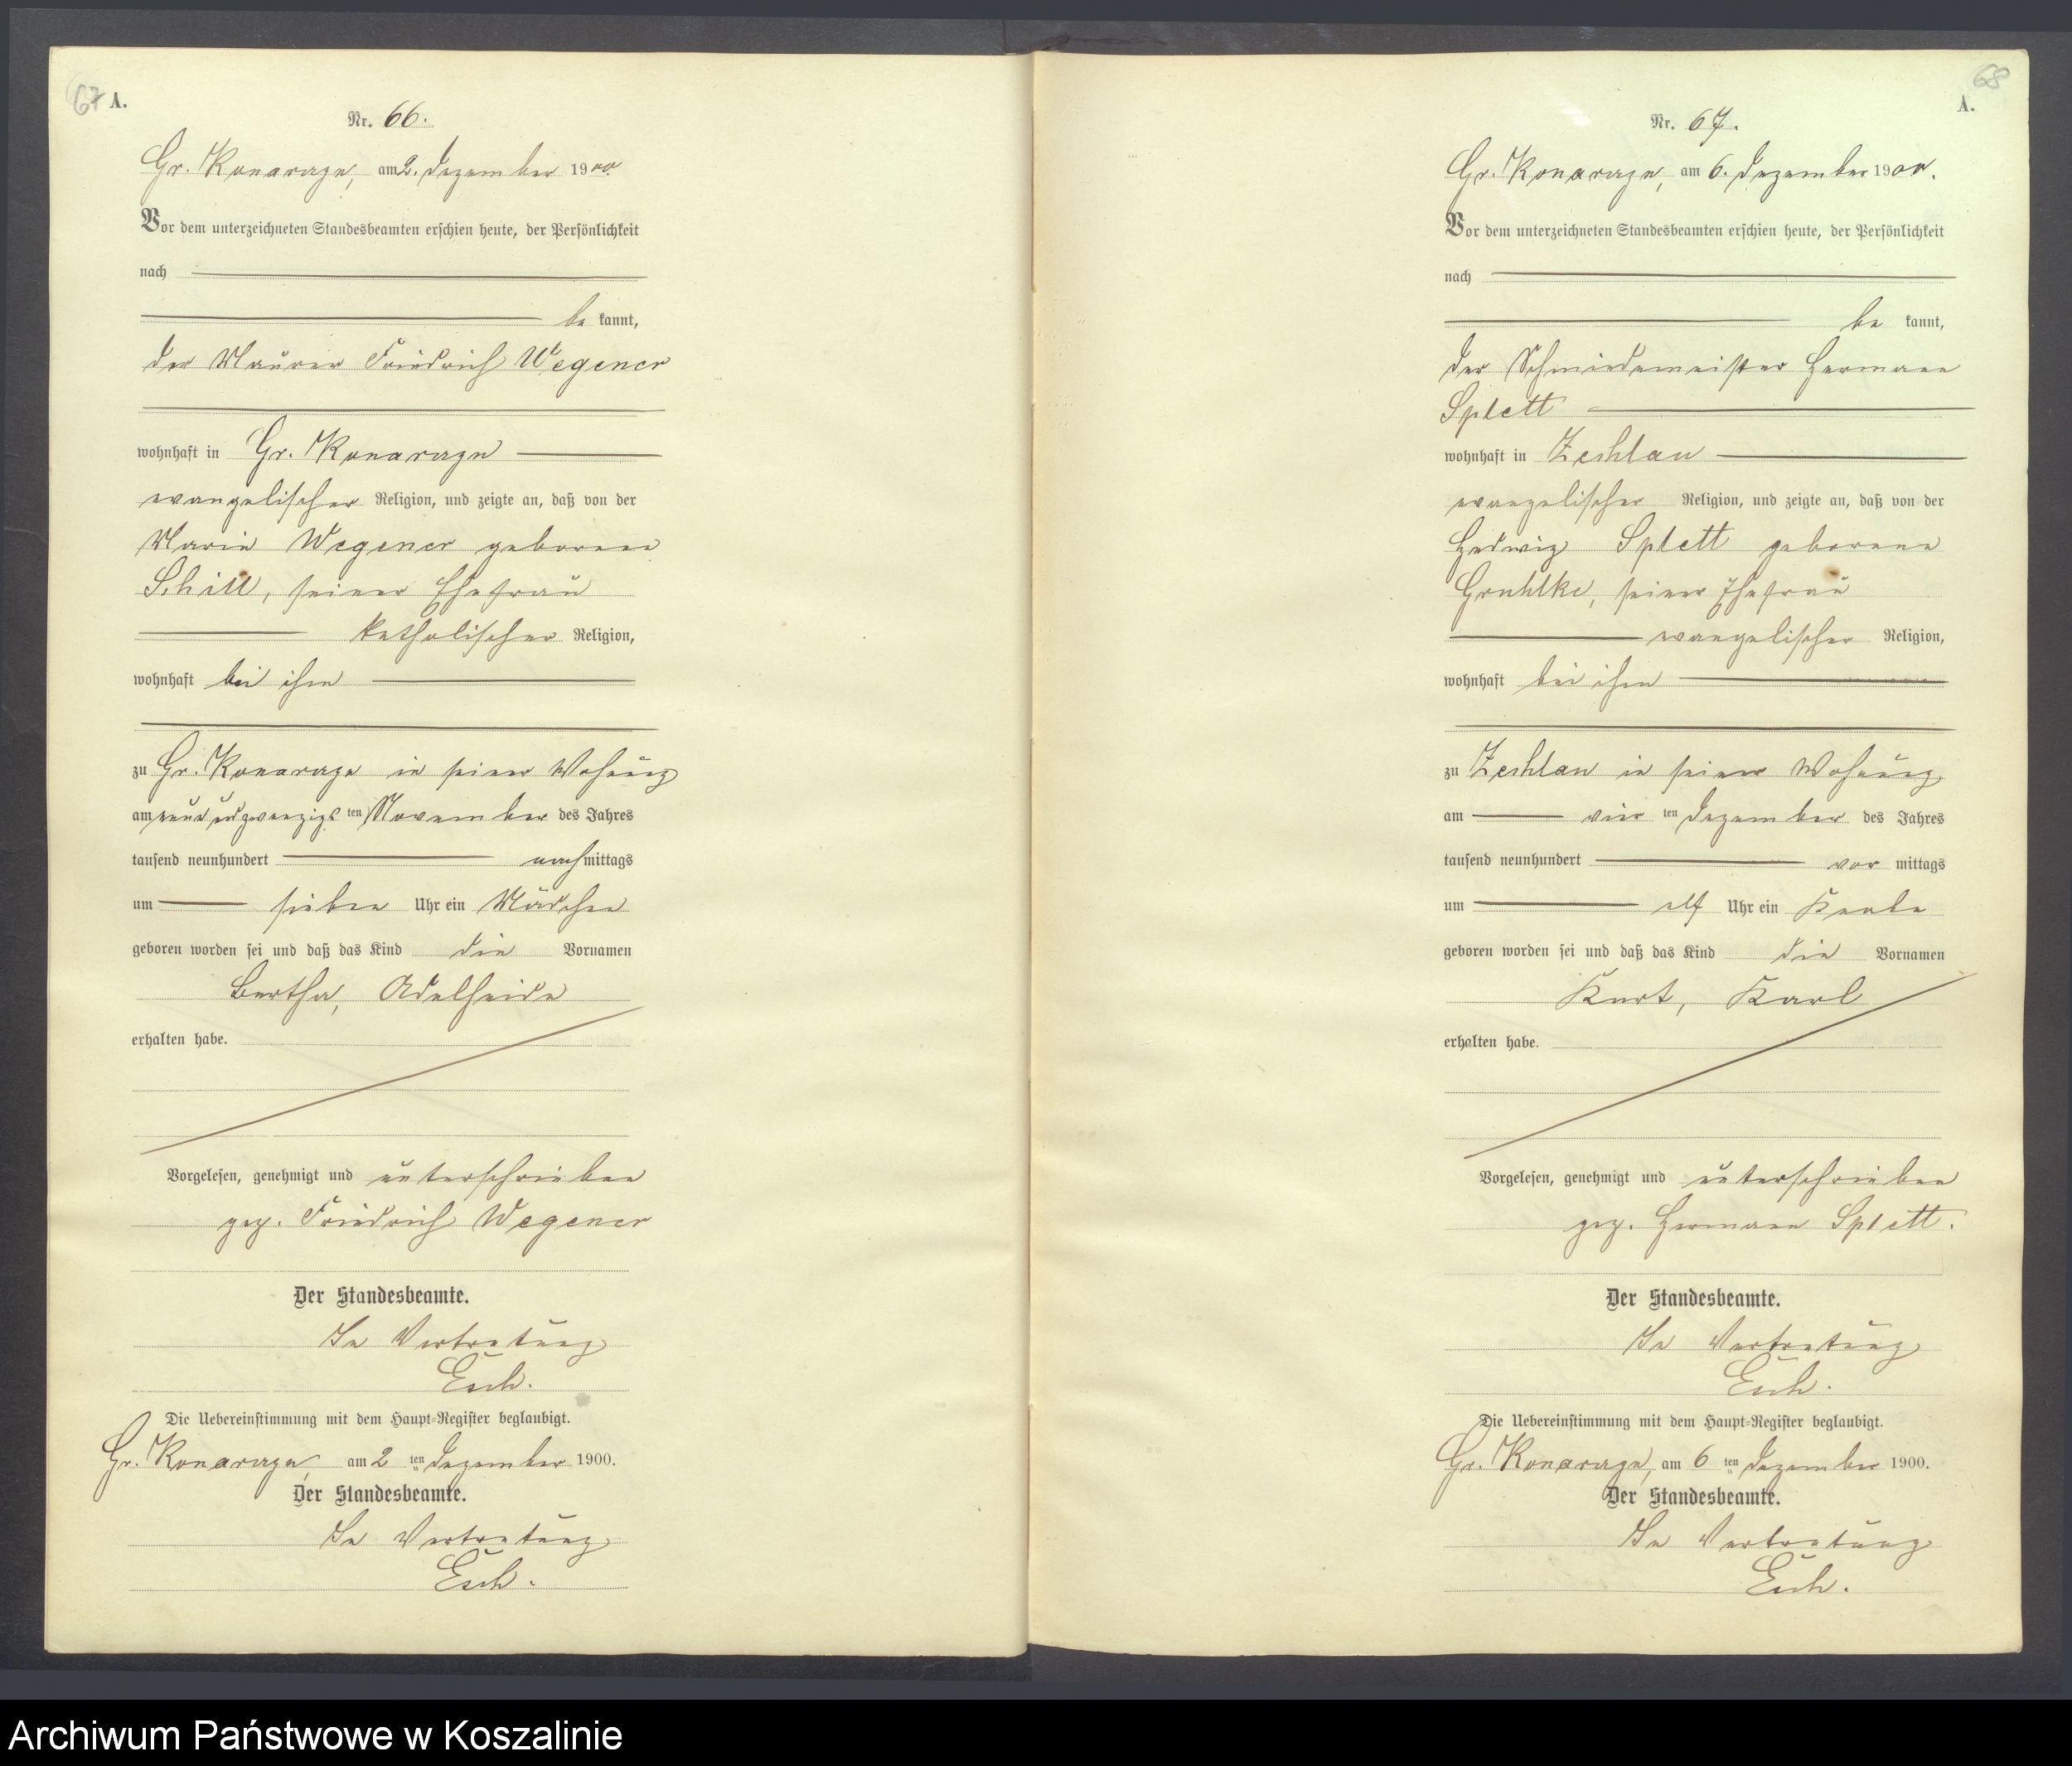 67 A.
Nr. 66.
Gr. Konarzyn, am 2. Dezember 1900.
Vor dem unterzeichneten Standesbeamten erschien heute, der Persönlichkeit
nach
be kannt,
der Maurer Friedrich Wegener
wohnhaft in Gr. Konarzyn
evangelischer Religion, und zeigte an, daß von der
Marie Wegener geborene
Schill, seiner Ehefrau
katholischer Religion,
wohnhaft bei ihm
zu Gr. Konarzyn in seiner Wohnung
am undzwanzigsten November des Jahres
tausend neunhundert nachmittags
um sieben Uhr ein Mädchen
geboren worden sei und daß das Kind die Vornamen
Bertha, Adelheide
erhalten habe.
Vorgelesen, genehmigt und unterschrieben
gez. Friedrich Wegener
Der Standesbeamte.
In Vertretung
Esch.
Die Uebereinstimmung mit dem Haupt-Register beglaubigt.
Gr. Konarzyn, am 2 ten Dezember 1900.
Der Standesbeamte.
In Vertretung
Esch.
68
A.
Nr. 67.
Gr. Konarzyn, am 6. Dezember 1900.
Vor dem unterzeichneten Standesbeamten erschien heute, der Persönlichkeit
nach
be kannt,
der Schmiedemeister Hermann
Splett
wohnhaft in Zechlau
evangelischer Religion, und zeigte an, daß von der
Hedwig Splett geborene
Gruhlke, seiner Ehefrau
evangelischer Religion,
wohnhaft bei ihm
zu Zechlau in seiner Wohnung
am vier ten Dezember des Jahres
tausend neunhundert vor mittags
um elf Uhr ein Knabe
geboren worden sei und daß das Kind die Vornamen
Kurt, Karl
erhalten habe.
Vorgelesen, genehmigt und unterschrieben
gez. Hermann Splett.
Der Standesbeamte.
In Vertretung
Esch.
Die Uebereinstimmung mit dem Haupt-Register beglaubigt.
Gr. Konarzyn, am 6 ten Dezember 1900.
Der Standesbeamte.
In Vertretung
Esch.
Archiwum Państwowe w Koszalinie